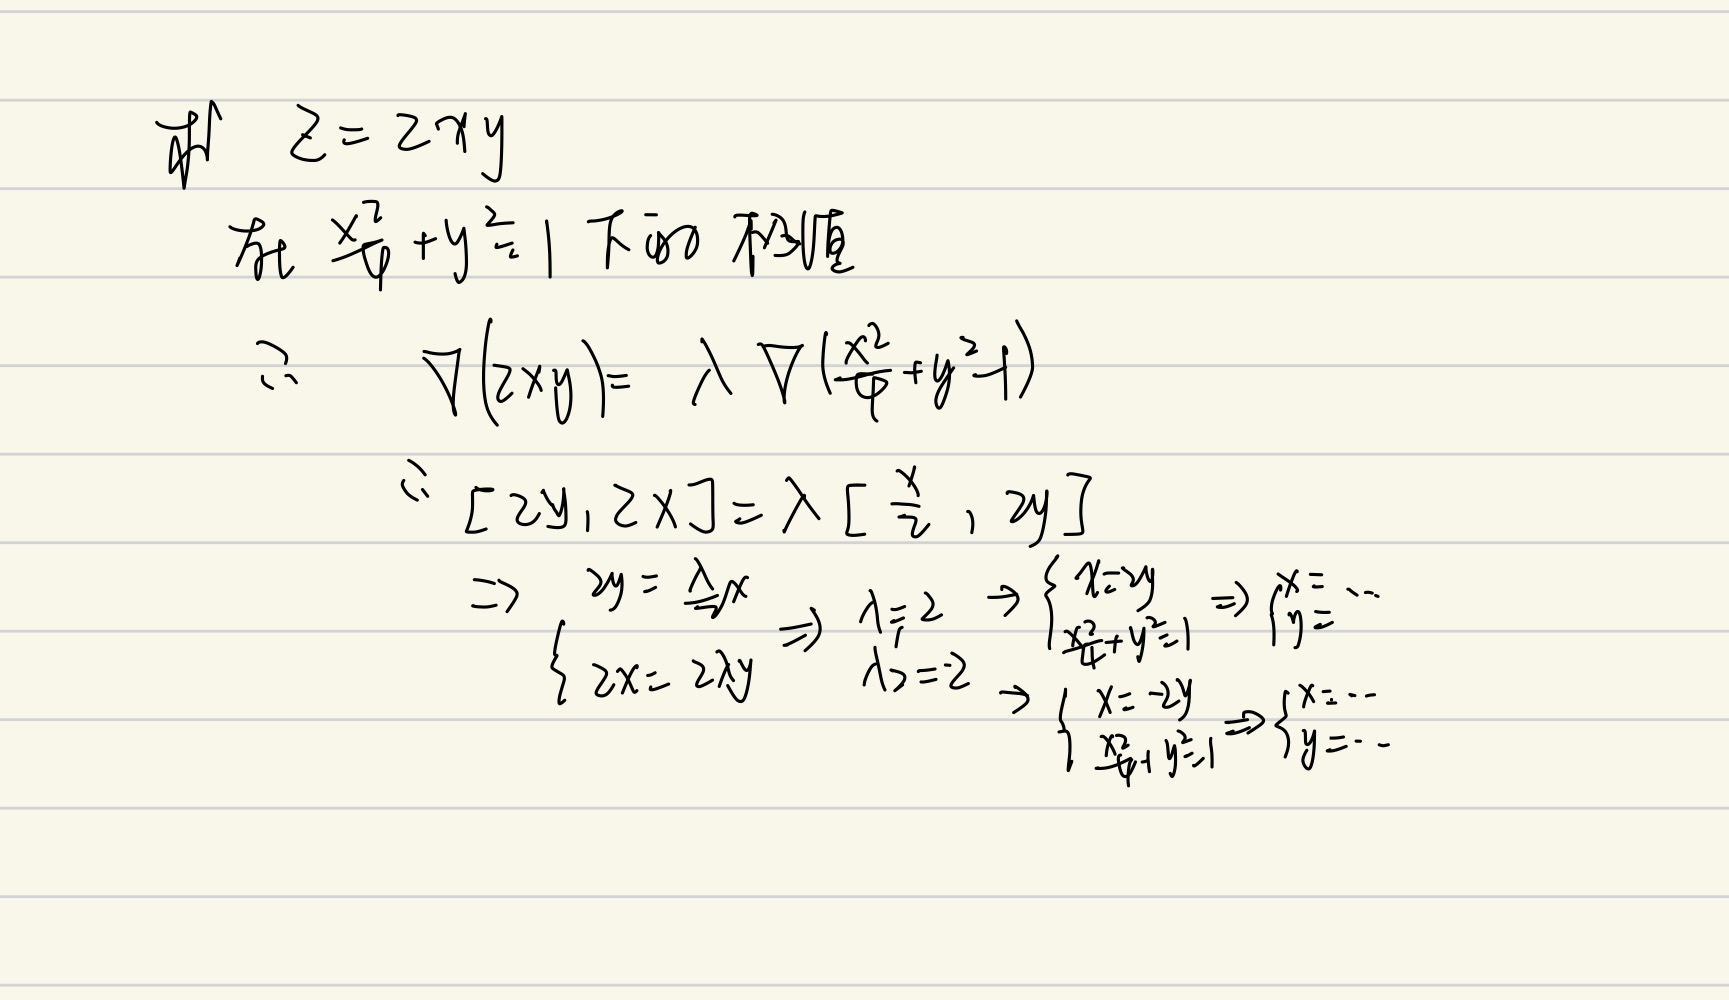 求 z=2xy
在 x²/4+y²=1 下的 极值
∴ ∇(2xy)= λ∇(x²/4+y²-1)
∴ [2y, 2x]=λ[x/2, 2y]
⇒ { 2y=λ/2 x 2x=2λy ⇒ λ₁=2 λ₂=-2
→ { x=2y x²/4+y²=1 ⇒ { x=… y=
→ { x=-2y x²/4+y²=1 ⇒ { x=… y=…